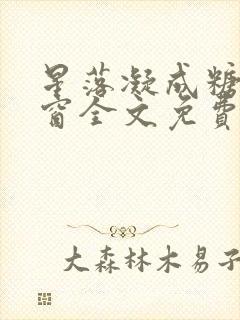 星落凝成糖
窗全文免费
大森林木易子